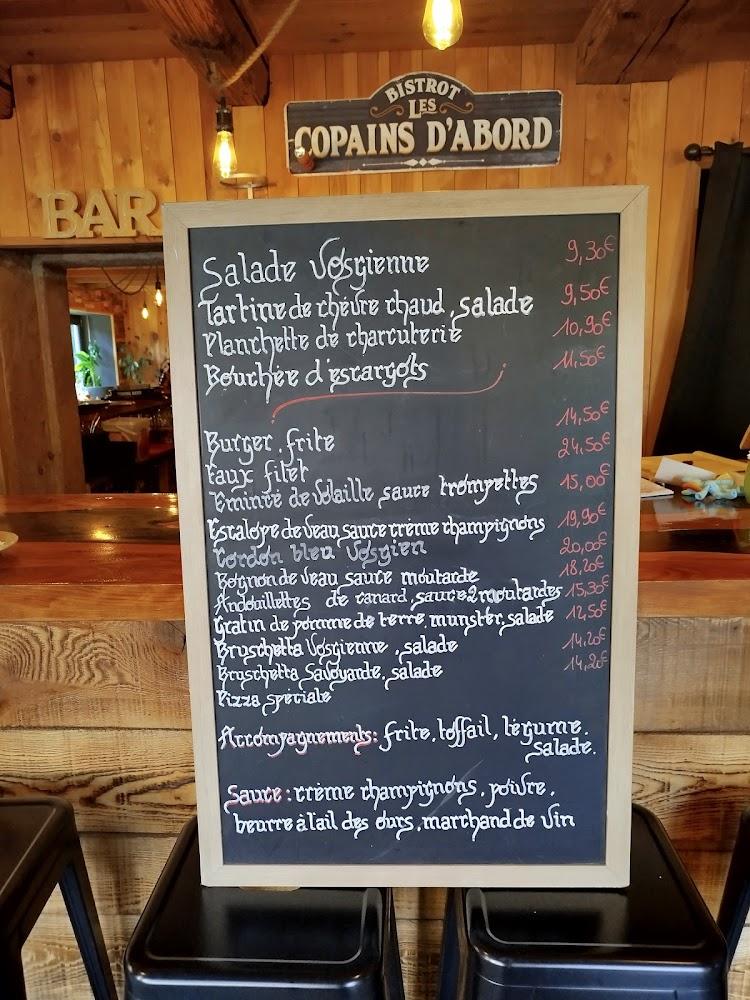 BISTROT
LES
COPAINS D'ABORD
BAR
Salade Vosgienne 9,30€
Tartine de chèvre chaud, salade 9,50€
Planchette de charcuterie 10,90€
Bouchée d'escargots 11,50€
Burger, frite 14,50€
Faux filet 24,50€
Emincé de Volaille, sauce trompettes 15,00€
Escalope de veau sauce crème champignons 19,90€
Cordon bleu Vosgien 20,00€
Rognon de veau sauce moutarde 18,20€
Andouillettes de canard, sauce 2 moutardes 15,30€
Gratin de pomme de terre, munster, salade 12,50€
Bruschetta Vosgienne, salade 14,20€
Bruschetta Savoyarde, salade 14,20€
Pizza spéciale
Accompagnements: frite, toffail, légume,
salade.
Sauce: crème champignons, poivre,
beurre à l'ail des ours, marchand de vin